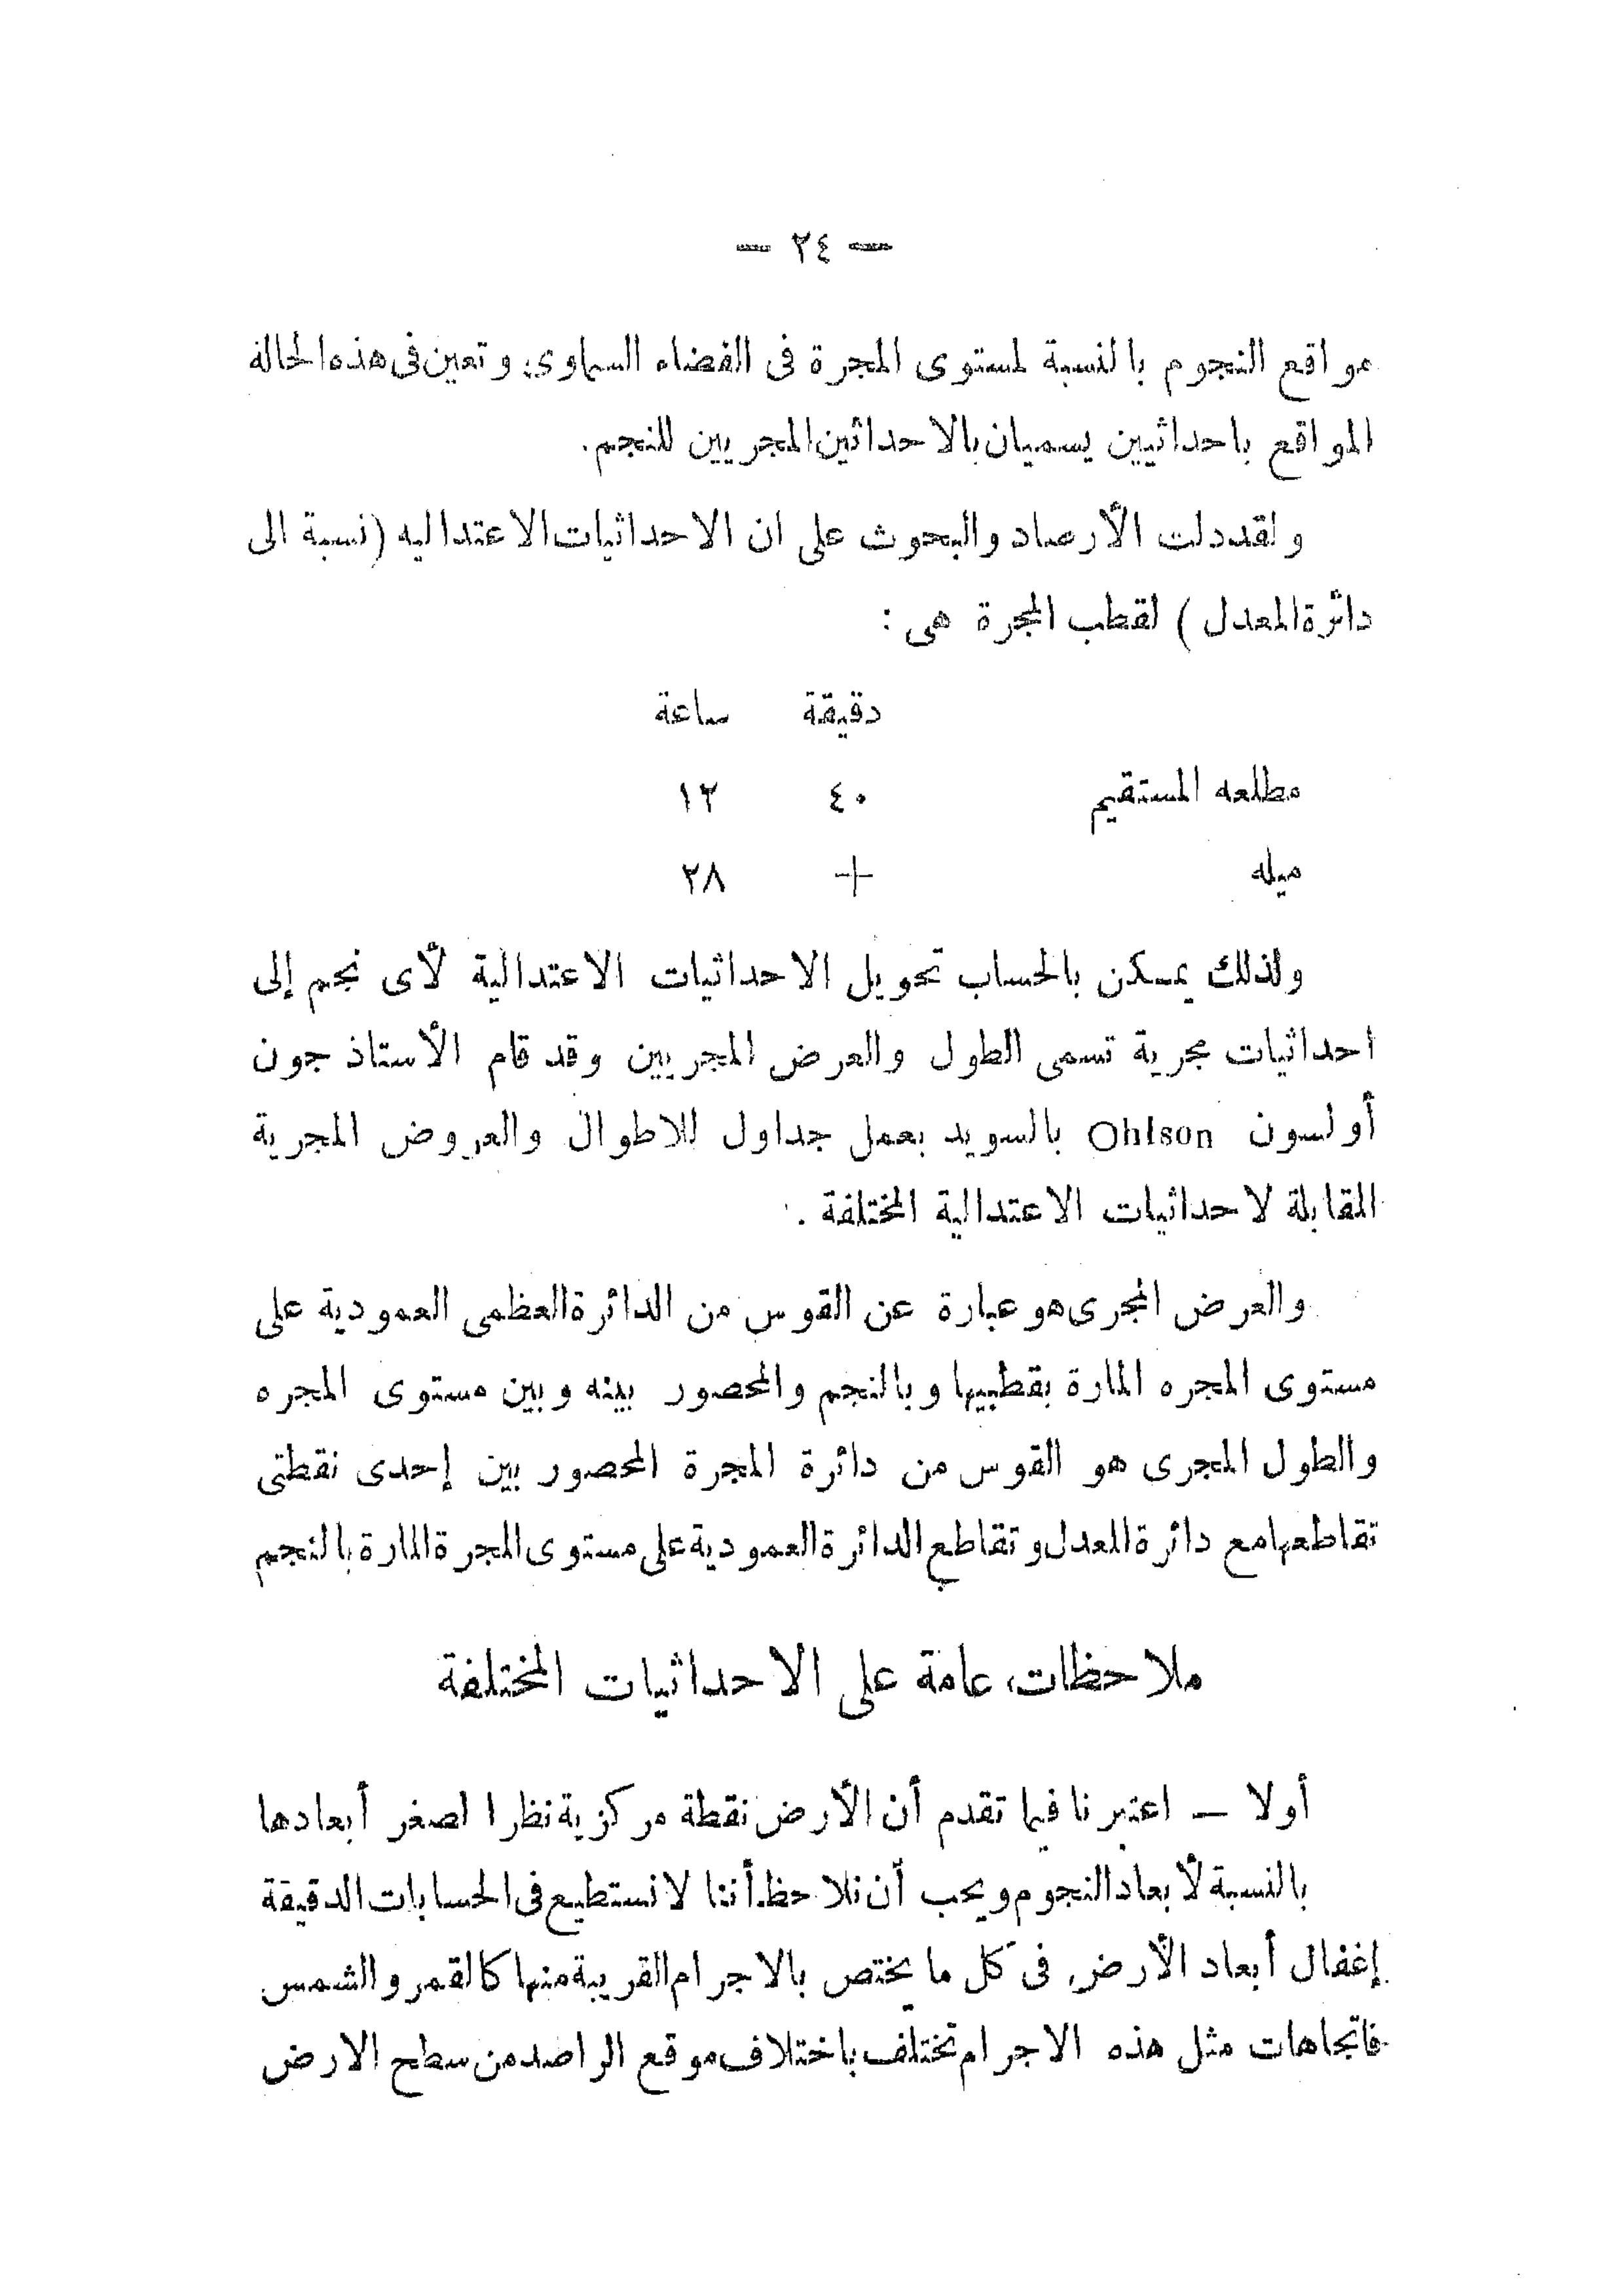 — ٢٤ —
مواقع النجوم بالنسبة لمستوى المجرة فى الفضاء السماوى، وتعين فى هذه الحالة
المواقع باحداثيين يسميان بالاحداثين المجريين للنجم.
ولقد دلت الأرصاد والبحوث على ان الاحداثيات الاعتداليه (نسبة الى
دائرة المعدل) لقطب المجرة هى :
دقيقة ساعة
مطلعه المستقيم ٤٠ ١٢
ميله + ٢٨
ولذلك يمكن بالحساب تحويل الاحداثيات الاعتدالية لأى نجم إلى
احداثيات مجرية تسمى الطول والعرض المجريين وقد قام الأستاذ جون
أولسون Ohlson بالسويد بعمل جداول للاطوال والعروض المجرية
المقابلة لاحداثيات الاعتدالية المختلفة .
والعرض المجرى هو عبارة عن القوس من الدائرة العظمى العمودية على
مستوى المجره المارة بقطبيها وبالنجم والمحصور بينه وبين مستوى المجره
والطول المجرى هو القوس من دائرة المجرة المحصور بين إحدى نقطتى
تقاطعها مع دائرة المعدل وتقاطع الدائرة العمودية على مستوى المجرة المارة بالنجم
ملاحظات عامة على الاحداثيات المختلفة
أولا — اعتبرنا فيما تقدم أن الأرض نقطة مركزية نظرا لصغر أبعادها
بالنسبة لأبعاد النجوم ويجب أن نلاحظ أننا لا نستطيع فى الحسابات الدقيقة
إغفال أبعاد الأرض فى كل ما يختص بالاجرام القريبة منها كالقمر والشمس
فاتجاهات مثل هذه الاجرام تختلف باختلاف موقع الراصد من سطح الارض